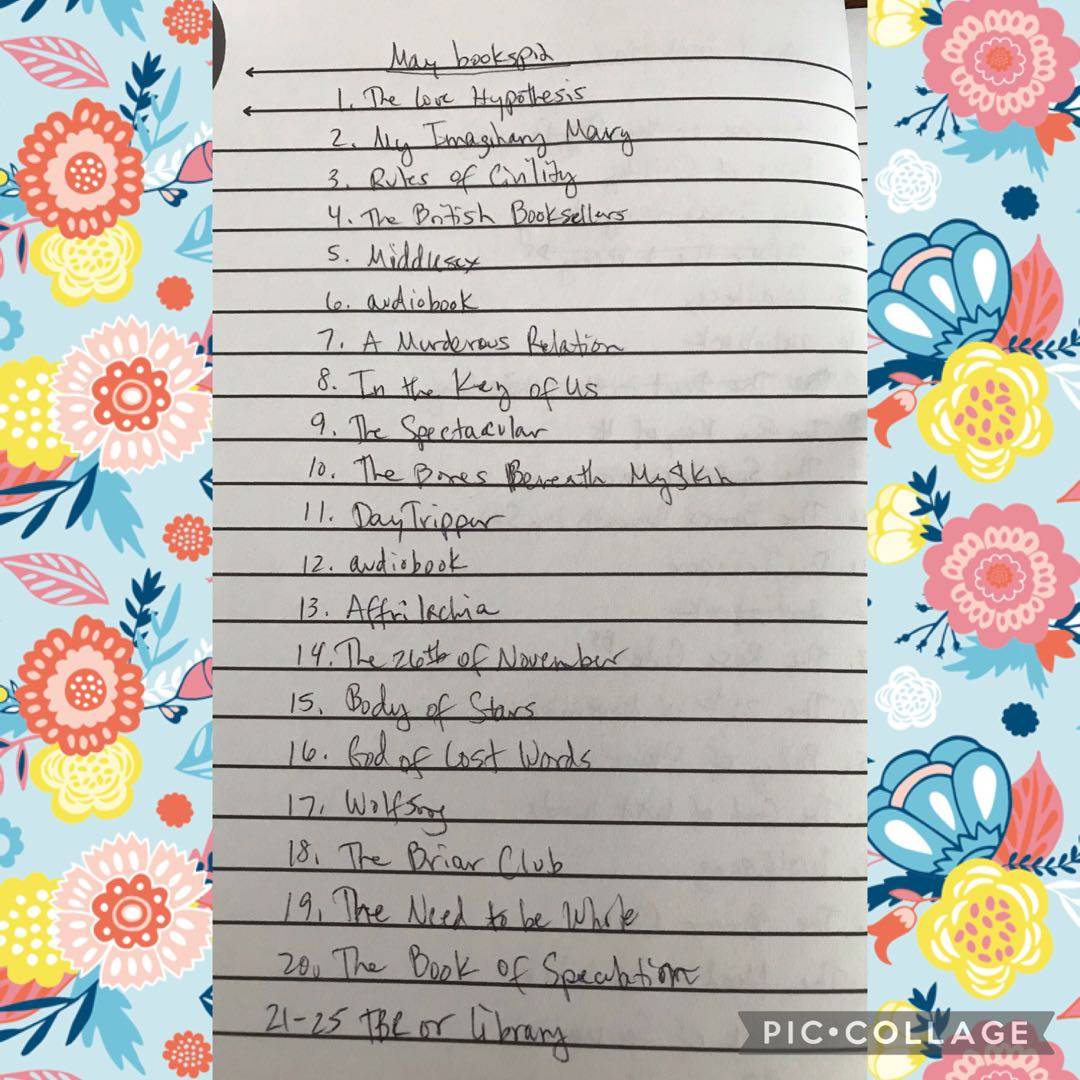 May bookspin
1. The Love Hypothesis
2. My Imaginary Mary
3. Rules of Civility
4. The British Booksellers
5. Middlesex
6. audiobook
7. A Murderous Relation
8. In the Key of Us
9. The Spectacular
10. The Bones Beneath My Skin
11. DayTripper
12. audiobook
13. Affrilachia
14. The 26th of November
15. Body of Stars
16. God of Lost Words
17. Wolfsong
18. The Briar Club
19. The Need to be Whole
20. The Book of Speculation
21-25 TBR or Library
PIC•COLLAGE